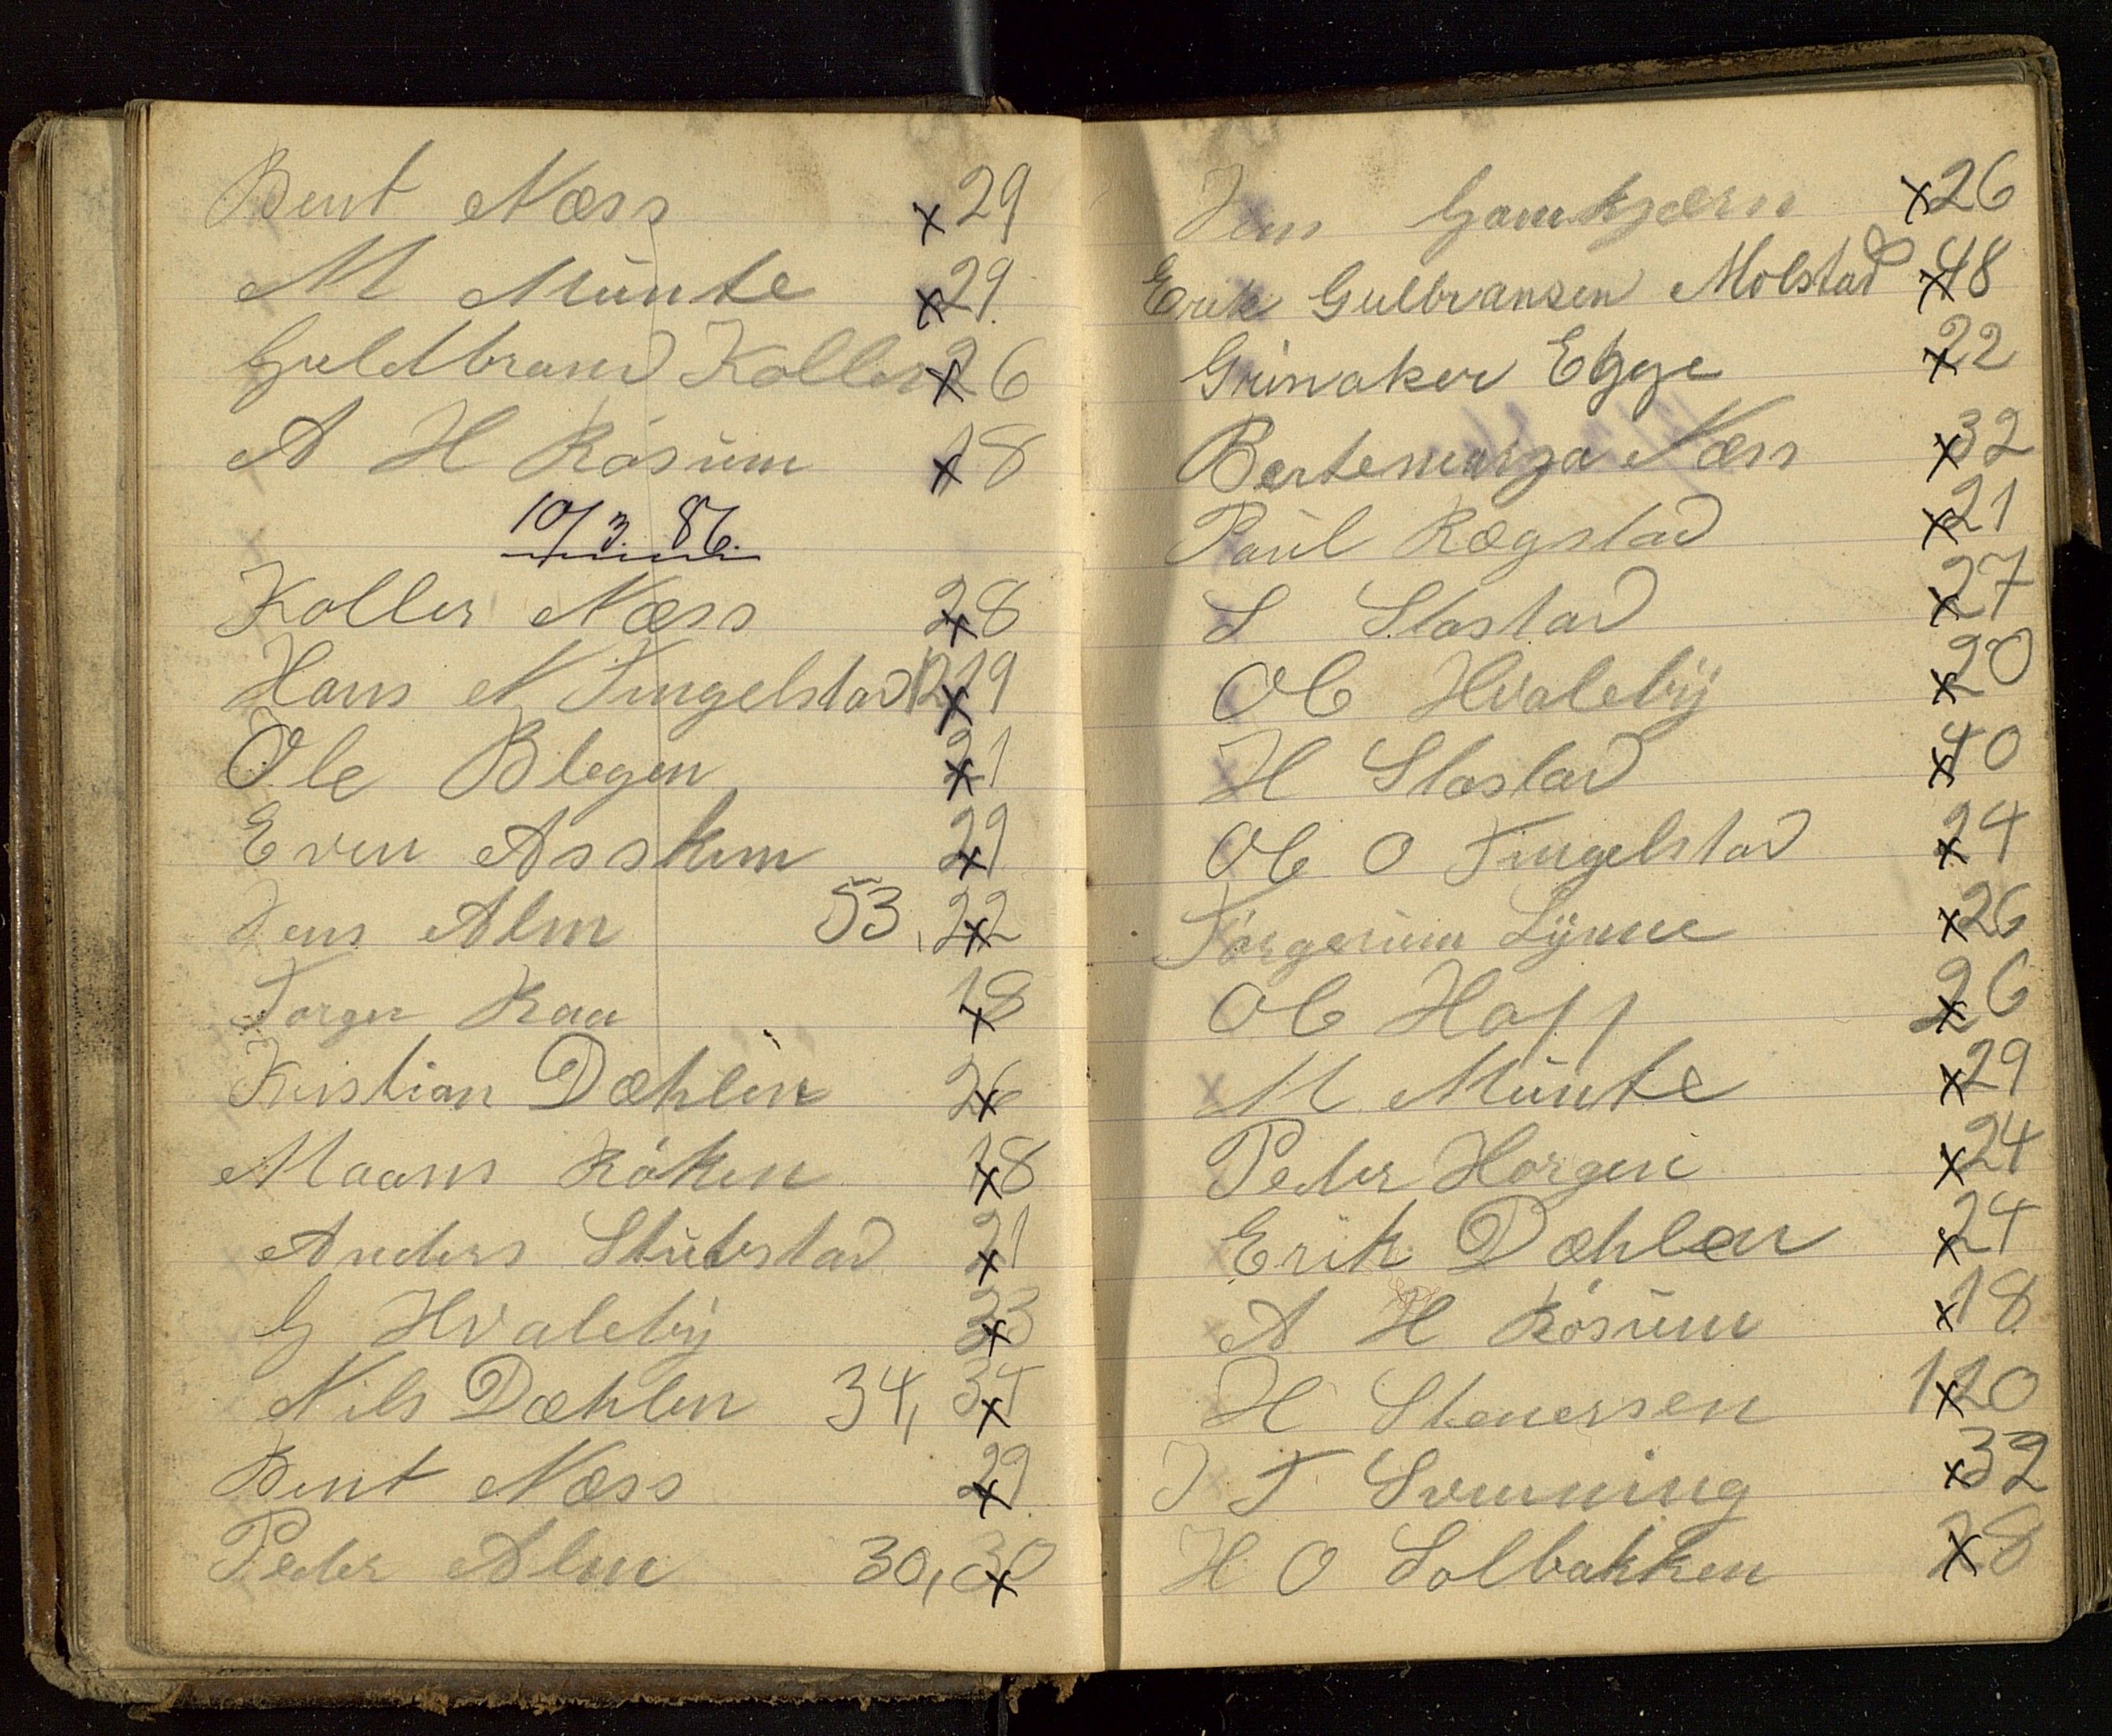 Bent Næss x 29
M Münte x 29
Guldbrand Koller x 26
A H Rösum x 18
10/3. 86.
Koller Næss 28 x
Hans N Tingelstad 219 x
Ole Blegen 21 x
Even Asskim 29 x
Jens Alm 53, 22 x
Torger Raa 18 x
Kristian Dæhlin 26 x
Maans Röken 18 x
Anders Stubstad 21 x
G Hvaleby 33 x
Nils Dæhlen 34, 34 x
Bent Næss 29 x
Peder Alm 30, 30 x
Jens Gamkjærn x 26
Erik Gulbransen Molstad x 48
Grinaker Egge x 22
Bertemarga Næss x 32
Paul Rægstad x 21
S Slastad x 27
Ole Hvaleby x 20
H Slastad x 40
Ole O Tingelstad x 24
Törgerium Lynne x 26
Ole Hoff x 26
M Münte x 29
Peder Horgen x 24
Erik Dæhlen x 24
A H Rösum x 18
H Stenersen 120 x
J T Svenning x 32
H O Solbakken x 28